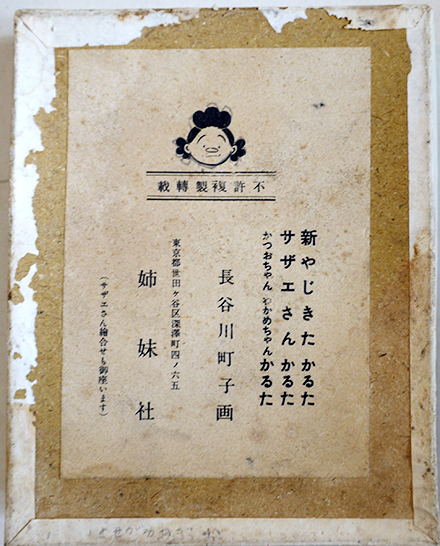 不許複製轉載
新やじきた かるた
サザエさん かるた
かつおちゃん わかめちゃん かるた
長谷川町子画
東京都世田ヶ谷区深澤町四ノ六五
姉妹社
(サザエさん繪合せも御座います)